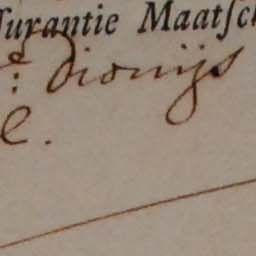 ſurantie Maatſch
: Dionijs
e.